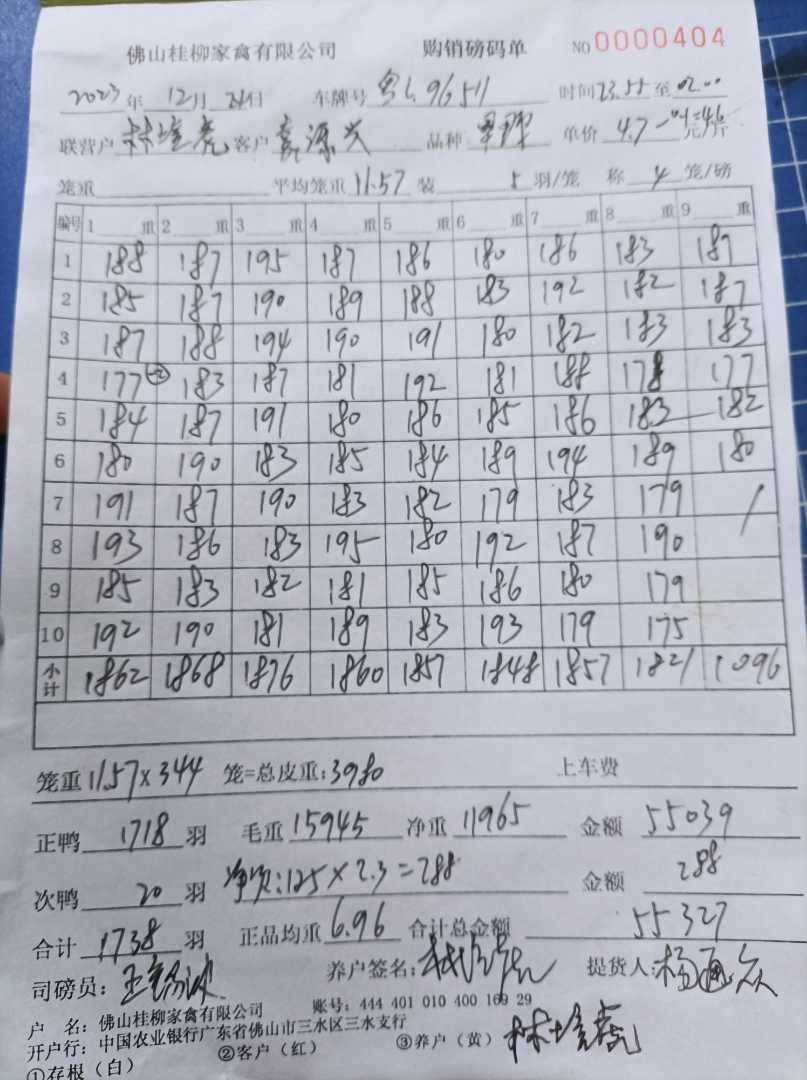 佛山桂柳家禽有限公司 购销磅码单 NO 0000404
2023年 12月 21日 车牌号 粤L96511 时间 23.55 至 02.00
联营户 林培亮 客户 源兴 品种 单价 4.7-0.1=4.6 元/斤
笼重 平均笼重 11.57 装 5 羽/笼 称 4 笼/磅
编号 1 重 2 重 3 重 4 重 5 重 6 重 7 重 8 重 9 重
1 188 187 195 187 186 180 186 183 187
2 185 187 190 189 188 183 192 182 187
3 187 188 194 190 191 180 182 183 183
4 177 183 187 181 192 181 188 178 177
5 184 187 191 180 186 185 186 183 182
6 180 190 183 185 184 189 194 189 180
7 191 187 190 183 182 179 183 179 /
8 193 186 183 195 180 192 187 190
9 185 183 182 181 185 186 180 179
10 192 190 181 189 183 193 179 175
小计 1862 1868 1876 1860 1857 1848 1857 1821 1096
笼重 11.57×344 笼=总皮重: 3980 上车费
正鸭 1718 羽 毛重 15945 净重 11965 金额 55039
次鸭 20 羽 净次:125×2.3=288 金额 288
合计 1738 羽 正品均重 6.96 合计总金额 55327
司磅员: 养户签名: 林培亮 提货人: 杨通众
户 名: 佛山桂柳家禽有限公司 账号: 444 401 010 400 169 29
开户行: 中国农业银行广东省佛山市三水区三水支行
①存根(白) ②客户(红) ③养户(黄) 林培亮